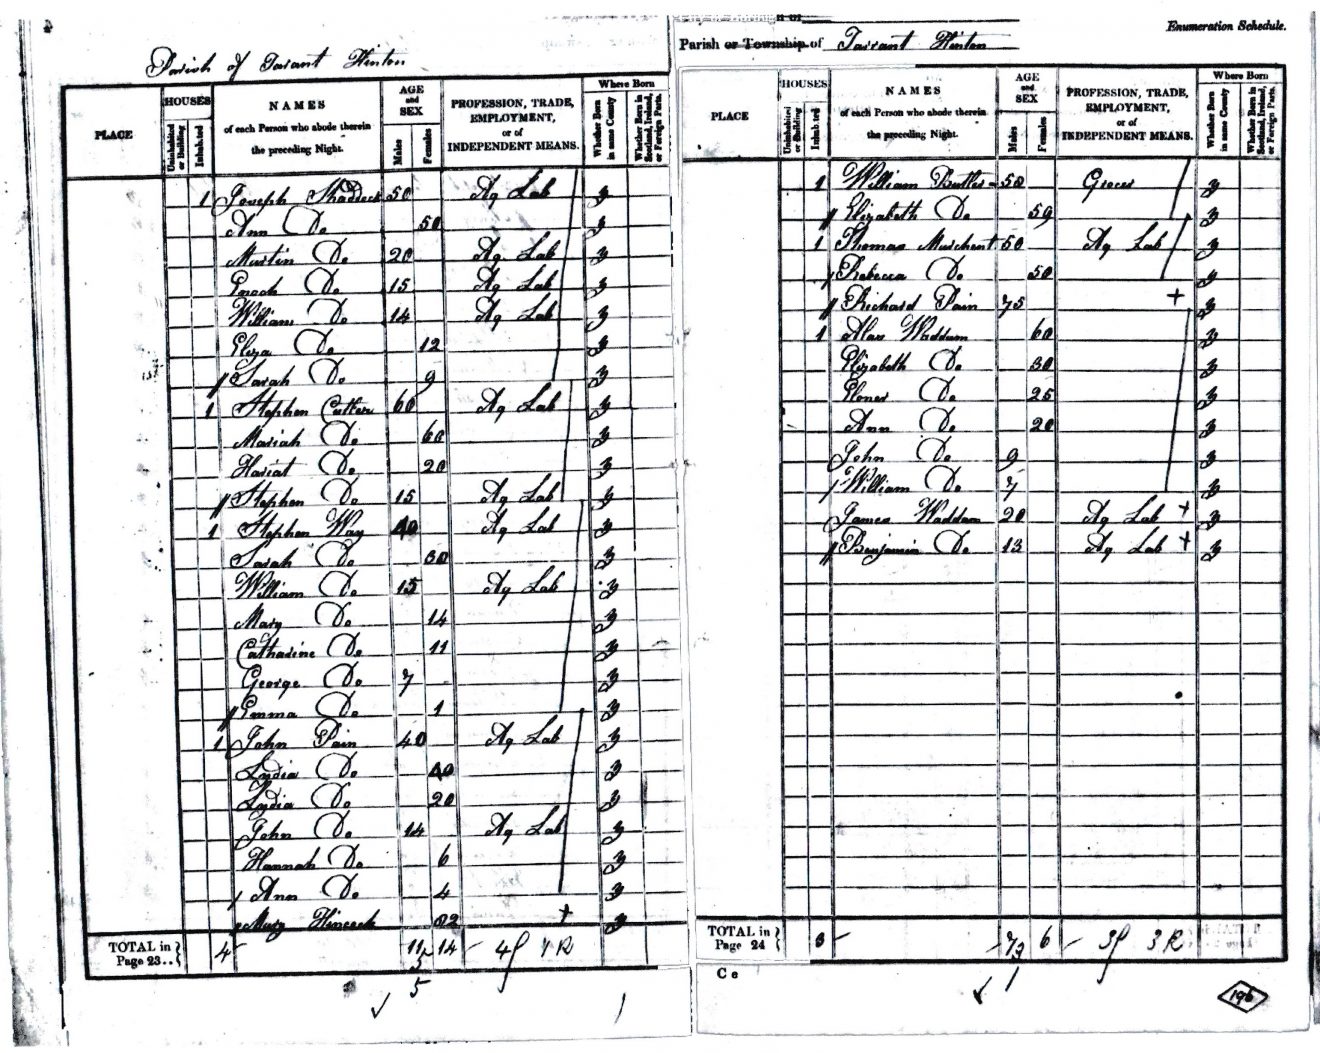 Parish of Tarant Hinton
PLACE
HOUSES
Uninhabited or Building
Inhabited
NAMES
of each Person who abode therein
the preceding Night.
AGE and SEX
Males
Females
PROFESSION, TRADE,
EMPLOYMENT,
or of
INDEPENDENT MEANS.
Where Born
Whether Born in same County
Whether Born in Scotland, Ireland, or Foreign Parts.
1 Joseph 50 Ag Lab y
Ann Do 50 y
Martin Do 20 Ag Lab y
Enoch Do 15 Ag Lab y
William Do 14 Ag Lab y
Eliza Do 12 y
Sarah Do 9 y
1 Stephen Cutler 60 Ag Lab y
Mariah Do 60 y
Hariat Do 20 y
Stephen Do 15 Ag Lab y
1 Stephen Way 40 Ag Lab y
Sarah Do 30 y
William Do 15 Ag Lab y
Mary Do 14 y
Catharine Do 11 y
George Do 7 y
Emma Do 1 y
1 John Pain 40 Ag Lab y
Lydia Do 40 y
Lydia Do 20 y
John Do 14 Ag Lab y
Hannah Do 6 y
Ann Do 4 y
Mary Hincock + y
TOTAL in Page 23.. 4 11 14
5
5
Enumeration Schedule.
Parish or Township of Tarrant Hinton
PLACE
HOUSES
Uninhabited or Building
Inhabited
NAMES
of each Person who abode therein
the preceding Night.
AGE and SEX
Males
Females
PROFESSION, TRADE,
EMPLOYMENT,
or of
INDEPENDENT MEANS.
Where Born
Whether Born in same County
Whether Born in Scotland, Ireland, or Foreign Parts.
1 William Butler 50 Grocer y
Elizabeth Do 59 y
1 Thomas Merchant 50 Ag Lab y
Rebecca Do 50 y
Richard Pain 75 + y
1 Waddum 60 y
Elizabeth Do 30 y
Eloner Do 25 y
Ann Do 20 y
John Do 9 y
William Do 7 y
James Waddum 20 Ag Lab + y
Benjamin Do 13 Ag Lab + y
TOTAL in Page 24 3 7 6
1
C c
196